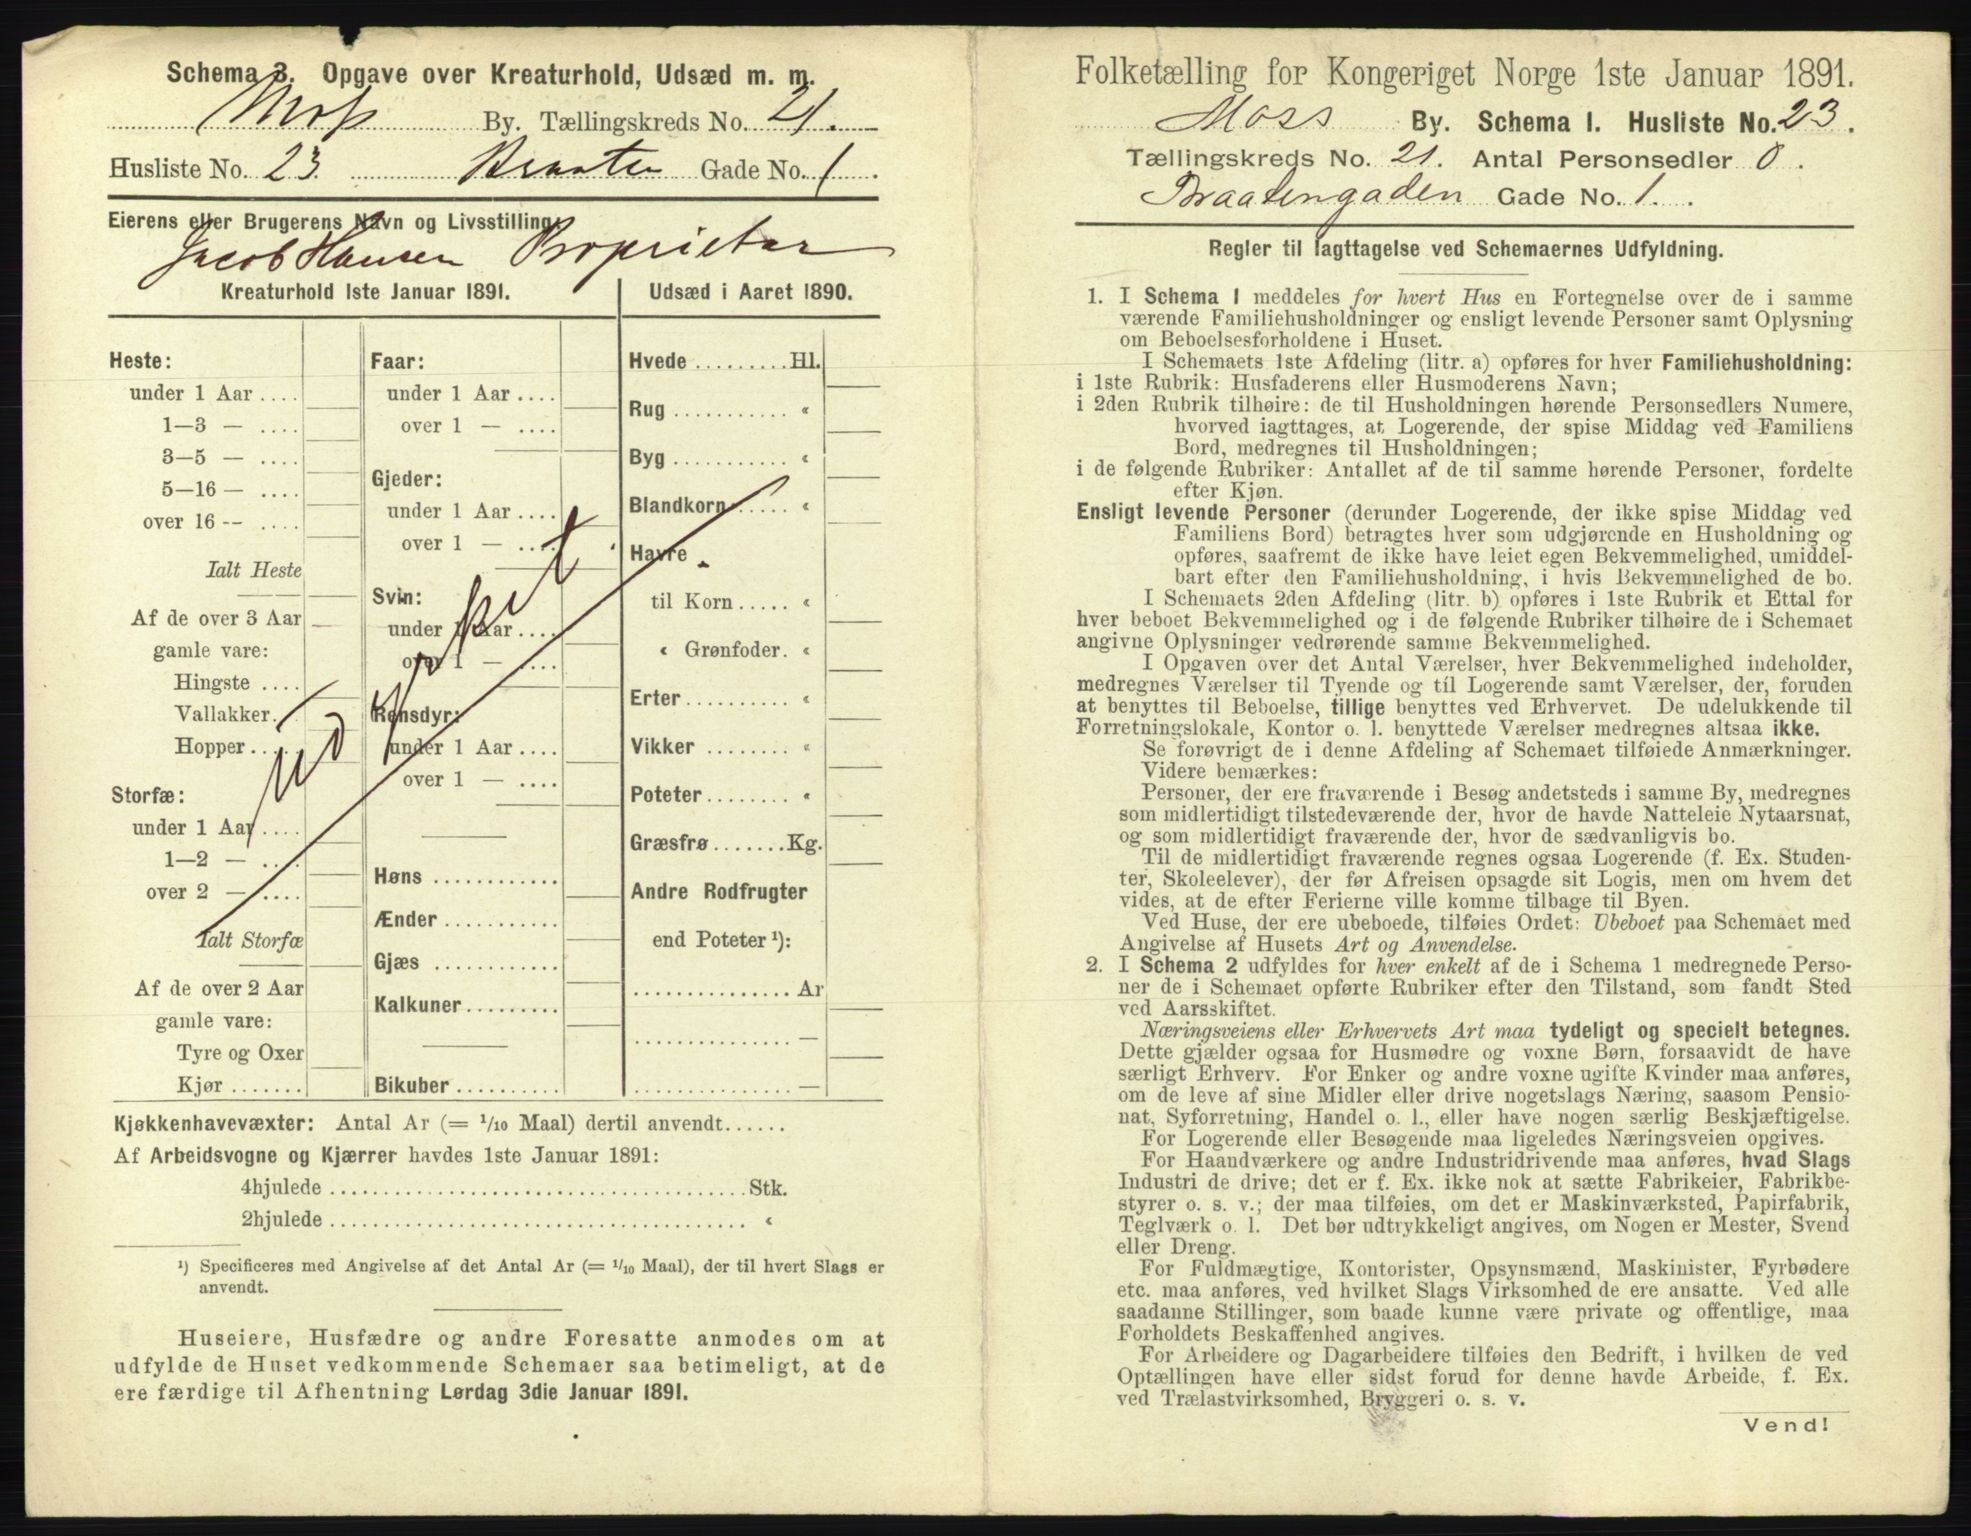 Schema 3. Opgave over Kreaturhold, Udsæd m. m.
Moss By. Tællingskreds No. 21.
Husliste No. 23 Braaten Gade No. 1.
Eierens eller Brugerens Navn og Livsstilling:
Jacob Hansen Proprietær
Kreaturhold 1ste Januar 1891.
Heste:
under 1 Aar ....
1—3 — ....
3—5 — ....
5—16 — ....
over 16 -- ....
Ialt Heste
Af de over 3 Aar
gamle vare:
Hingste ....
Vallakker.
Hopper ....
Storfæ:
under 1 Aar ....
1—2 — ....
over 2 — ....
Ialt Storfæ
Af de over 2 Aar
gamle vare:
Tyre og Oxer
Kjør .......
Faar:
under 1 Aar ....
over 1 — ....
Gjeder:
under 1 Aar ....
over 1 — ....
Svin:
under 1 Aar ....
over 1 — ....
Rensdyr:
under 1 Aar ....
over 1 — ....
Høns ............
Ænder ...........
Gjæs ............
Kalkuner.........
Bikuber ..........
Udsæd i Aaret 1890.
Hvede ......... Hl.
Rug ........... «
Byg ........... «
Blandkorn ..... «
Havre
til Korn ..... «
« Grønfoder. «
Erter .......... «
Vikker ........ «
Poteter ........ «
Græsfrø ....... Kg.
Andre Rodfrugter
end Poteter ¹):
............... Ar
............... —
............... —
udyrket
Kjøkkenhavevæxter: Antal Ar (= 1/10 Maal) dertil anvendt......
Af Arbeidsvogne og Kjærrer havdes 1ste Januar 1891:
4hjulede ........................................ Stk.
2hjulede ........................................ «
¹) Specificeres med Angivelse af det Antal Ar (= 1/10 Maal), der til hvert Slags er
anvendt.
Huseiere, Husfædre og andre Foresatte anmodes om at
udfylde de Huset vedkommende Schemaer saa betimeligt, at de
ere færdige til Afhentning Lørdag 3die Januar 1891.
Folketælling for Kongeriget Norge 1ste Januar 1891.
Moss By. Schema I. Husliste No. 23.
Tællingskreds No. 21. Antal Personsedler 0.
Braatengaden Gade No. 1.
Regler til Iagttagelse ved Schemaernes Udfyldning.
1. I Schema I meddeles for hvert Hus en Fortegnelse over de i samme
værende Familiehusholdninger og ensligt levende Personer samt Oplysning
om Beboelsesforholdene i Huset.
I Schemaets 1ste Afdeling (litr. a) opføres for hver Familiehusholdning:
i 1ste Rubrik: Husfaderens eller Husmoderens Navn;
i 2den Rubrik tilhøire: de til Husholdningen hørende Personsedlers Numere,
hvorved iagttages, at Logerende, der spise Middag ved Familiens
Bord, medregnes til Husholdningen;
i de følgende Rubriker: Antallet af de til samme hørende Personer, fordelte
efter Kjøn.
Ensligt levende Personer (derunder Logerende, der ikke spise Middag ved
Familiens Bord) betragtes hver som udgjørende en Husholdning og
opføres, saafremt de ikke have leiet egen Bekvemmelighed, umiddel-
bart efter den Familiehusholdning, i hvis Bekvemmelighed de bo.
I Schemaets 2den Afdeling (litr. b) opføres i 1ste Rubrik et Ettal for
hver beboet Bekvemmelighed og i de følgende Rubriker tilhøire de i Schemaet
angivne Oplysninger vedrørende samme Bekvemmelighed.
I Opgaven over det Antal Værelser, hver Bekvemmelighed indeholder,
medregnes Værelser til Tyende og til Logerende samt Værelser, der, foruden
at benyttes til Beboelse, tillige benyttes ved Erhvervet. De udelukkende til
Forretningslokale, Kontor o. l. benyttede Værelser medregnes altsaa ikke.
Se forøvrigt de i denne Afdeling af Schemaet tilføiede Anmærkninger.
Videre bemærkes:
Personer, der ere fraværende i Besøg andetsteds i samme By, medregnes
som midlertidigt tilstedeværende der, hvor de havde Natteleie Nytaarsnat,
og som midlertidigt fraværende der, hvor de sædvanligvis bo.
Til de midlertidigt fraværende regnes ogsaa Logerende (f. Ex. Studen-
ter, Skoleelever), der før Afreisen opsagde sit Logis, men om hvem det
vides, at de efter Ferierne ville komme tilbage til Byen.
Ved Huse, der ere ubeboede, tilføies Ordet: Ubeboet paa Schemaet med
Angivelse af Husets Art og Anvendelse.
2. I Schema 2 udfyldes for hver enkelt af de i Schema 1 medregnede Perso-
ner de i Schemaet opførte Rubriker efter den Tilstand, som fandt Sted
ved Aarsskiftet.
Næringsveiens eller Erhvervets Art maa tydeligt og specielt betegnes.
Dette gjælder ogsaa for Husmødre og voxne Børn, forsaavidt de have
særligt Erhverv. For Enker og andre voxne ugifte Kvinder maa anføres,
om de leve af sine Midler eller drive nogetslags Næring, saasom Pensio-
nat, Syforretning, Handel o. l., eller have nogen særlig Beskjæftigelse.
For Logerende eller Besøgende maa ligeledes Næringsveien opgives.
For Haandværkere og andre Industridrivende maa anføres, hvad Slags
Industri de drive; det er f. Ex. ikke nok at sætte Fabrikeier, Fabrikbe-
styrer o. s. v.; der maa tilføies, om det er Maskinværksted, Papirfabrik,
Teglværk o. l. Det bør udtrykkeligt angives, om Nogen er Mester, Svend
eller Dreng.
For Fuldmægtige, Kontorister, Opsynsmænd, Maskinister, Fyrbødere
etc. maa anføres, ved hvilket Slags Virksomhed de ere ansatte. Ved alle
saadanne Stillinger, som baade kunne være private og offentlige, maa
Forholdets Beskaffenhed angives.
For Arbeidere og Dagarbeidere tilføies den Bedrift, i hvilken de ved
Optællingen have eller sidst forud for denne havde Arbeide, f. Ex.
ved Trælastvirksomhed, Bryggeri o. s. v.
Vend!